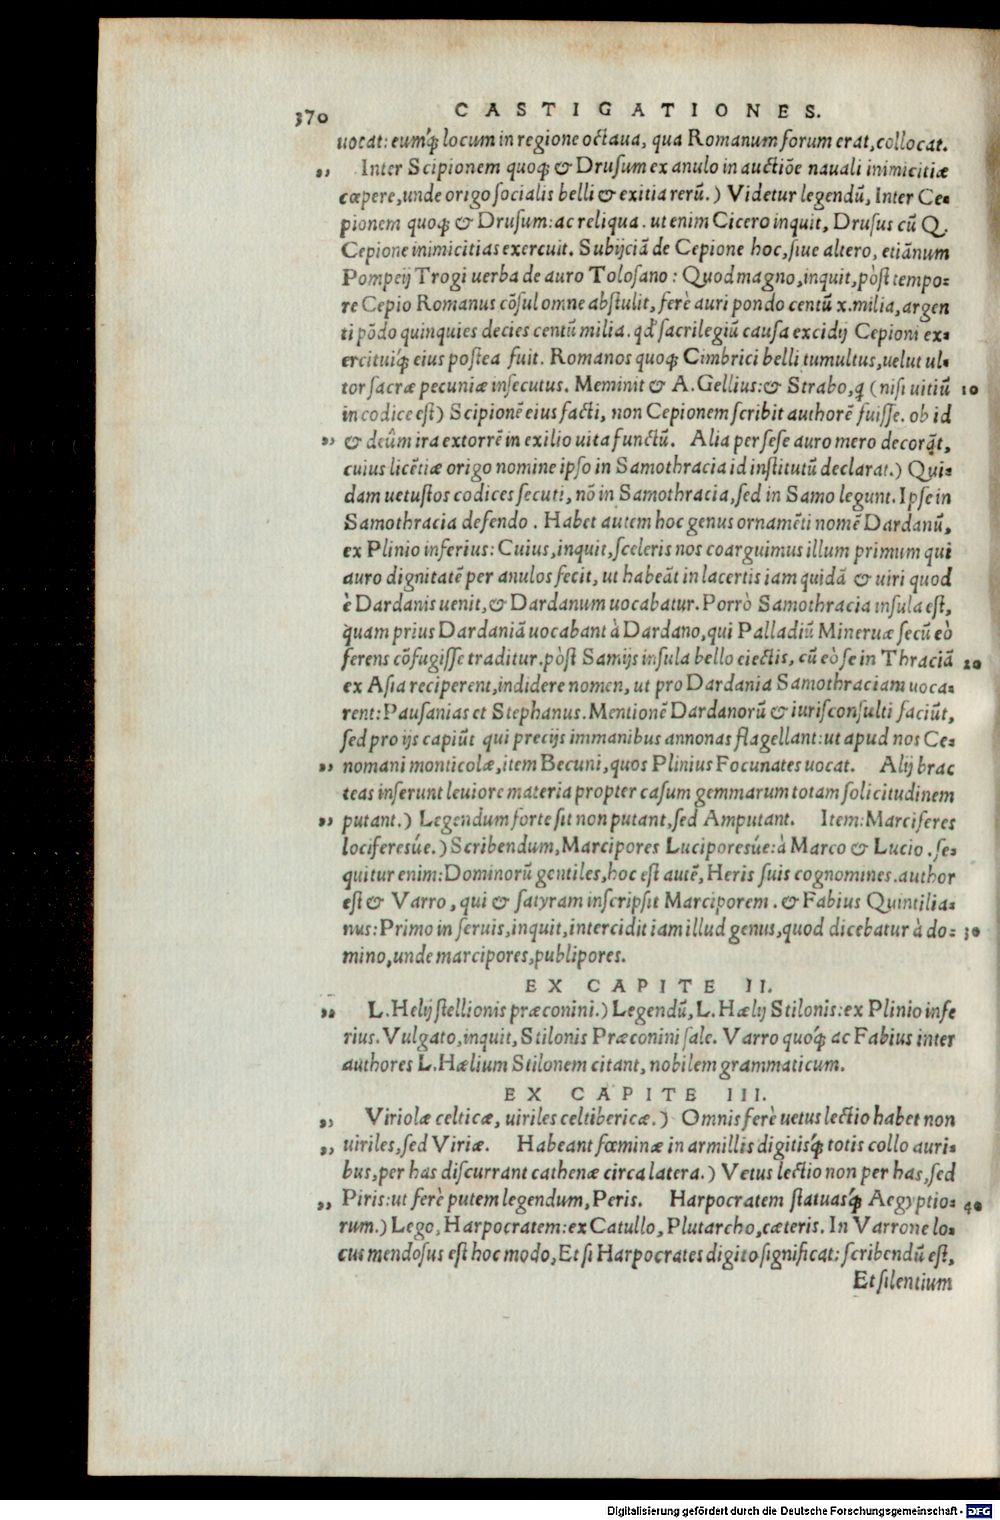 370 CASTIGATIONES.
uocat: eumq́; locum in regione octaua, qua Romanum forum erat, collocat.
,, Inter Scipionem quoq; & Drusum ex anulo in auctiõe nauali inimicitiæ
cœpere, unde origo socialis belli & exitia rerũ.) Videtur legendũ, Inter Ce=
pionem quoq; & Drusum: ac reliqua. ut enim Cicero inquit, Drusus cũ Q.
Cepione inimicitias exercuit. Subijciã de Cepione hoc, siue altero, etiãnum
Pompeij Trogi uerba de auro Tolosano: Quod magno, inquit, pòst tempo=
re Cepio Romanus cõsul omne abstulit, ferè auri pondo centũ x. milia, argen
ti põdo quinquies decies centũ milia. qđ sacrilegiũ causa excidij Cepioni ex=
ercituiq́; eius postea fuit. Romanos quoq; Cimbrici belli tumultus, uelut ul=
tor sacræ pecuniæ insecutus. Meminit & A. Gellius: & Strabo, q (nisi uitiũ 10
in codice est) Scipionẽ eius facti, non Cepionem scribit authorẽ fuisse. ob id
,, & deûm ira extorrẽ in exilio uita functũ. Alia per sese auro mero decorãt,
cuius licẽtiæ origo nomine ipso in Samothracia id institutũ declarat.) Qui=
dam uetustos codices secuti, nõ in Samothracia, sed in Samo legunt. Ipse in
Samothracia defendo. Habet autem hoc genus ornamẽti nomẽ Dardanũ,
ex Plinio inferius: Cuius, inquit, sceleris nos coarguimus illum primum qui
auro dignitatẽ per anulos fecit, ut habeãt in lacertis iam quidã & uiri quod
è Dardanis uenit, & Dardanum uocabatur. Porrò Samothracia insula est,
quam prius Dardaniã uocabant à Dardano, qui Palladiũ Mineruæ secũ eò
ferens cõfugisse traditur. pòst Samijs insula bello eiectis, cũ eò se in Thraciã 20
ex Asia reciperent, indidere nomen, ut pro Dardania Samothraciam uoca=
rent: Pausanias et Stephanus. Mentionẽ Dardanorũ & iurisconsulti faciũt,
sed pro ijs capiũt qui precijs immanibus annonas flagellant: ut apud nos Ce=
,, nomani monticolæ, item Becuni, quos Plinius Focunates uocat. Alij brac
teas inserunt leuiore materia propter casum gemmarum totam solicitudinem
,, putant.) Legendum forte sit non putant, sed Amputant. Item: Marciferes
lociferesúe.) Scribendum, Marcipores Luciporesúe: à Marco & Lucio. se=
quitur enim: Dominorũ gentiles, hoc est autẽ, Heris suis cognomines. author
est & Varro, qui & satyram inscripsit Marciporem. & Fabius Quintilia=
nus: Primo in seruis, inquit, intercidit iam illud genus, quod dicebatur à do= 30
mino, unde marcipores, publipores.
EX CAPITE II.
,, L. Helij stellionis præconini.) Legendũ, L. Hælij Stilonis: ex Plinio infe
rius. Vulgato, inquit, Stilonis Præconini sale. Varro quoq́; ac Fabius inter
authores L. Hælium Stilonem citant, nobilem grammaticum.
EX CAPITE III.
,, Viriolæ celticæ, uiriles celtibericæ.) Omnis ferè uetus lectio habet non
,, uiriles, sed Viriæ. Habeant fœminæ in armillis digitisq́; totis collo auri=
bus, per has discurrant cathenæ circa latera.) Vetus lectio non per has, sed
,, Piris: ut ferè putem legendum, Peris. Harpocratem statuasq́; Aegyptio= 40
rum.) Lego, Harpocratem: ex Catullo, Plutarcho, cæteris. In Varrone lo=
cus mendosus est hoc modo, Et si Harpocrates digito significat: scribendũ est,
Et silentium
Digitalisierung gefördert durch die Deutsche Forschungsgemeinschaft - DFG